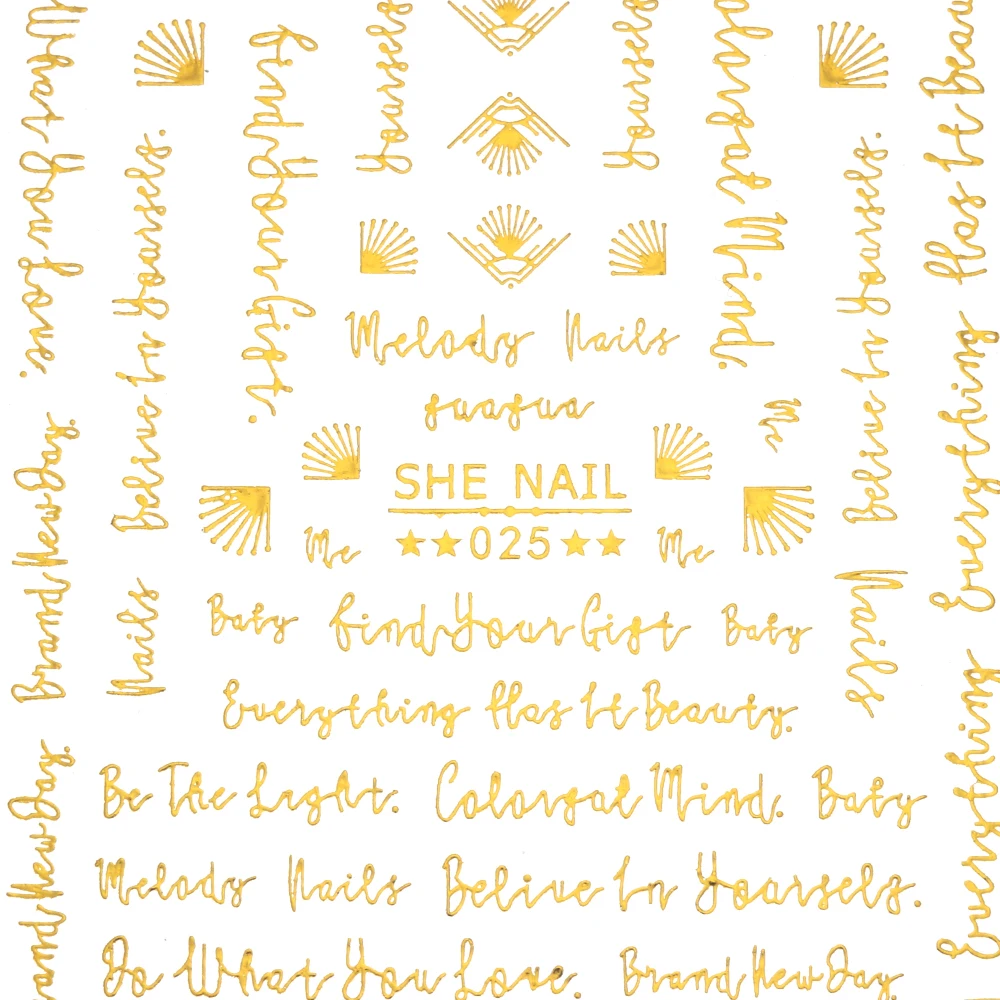 What You Love.
Believe In Yourself.
Find Your Gift.
Yourself
Yourself
Mind.
Believe In Yourself.
Has It Beau
Melody Nails
SHE NAIL
★★025★★
Me
Me
Me
Brand New Day.
Nails
Nails
Everything
Baby Find Your Gift Baby
Everything Has It Beauty.
Be The Light. Mind. Baby
Melody Nails Belive In Yourself.
Do What You Love. Brand New Day
and New Day.
Everything